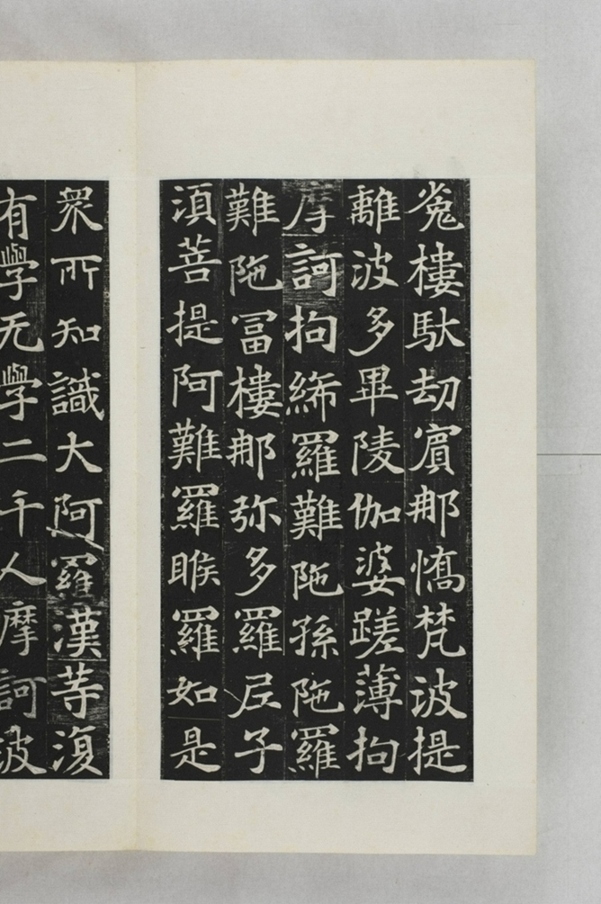 㝹樓馱劫賓那憍梵波提
離波多畢陵伽婆蹉薄拘
摩訶拘絺羅難陁孫陁羅
難陁冨樓那弥多羅尼子
湏菩提阿難羅睺羅如是
衆所知識大阿羅漢等復
有學无學二千人摩訶波